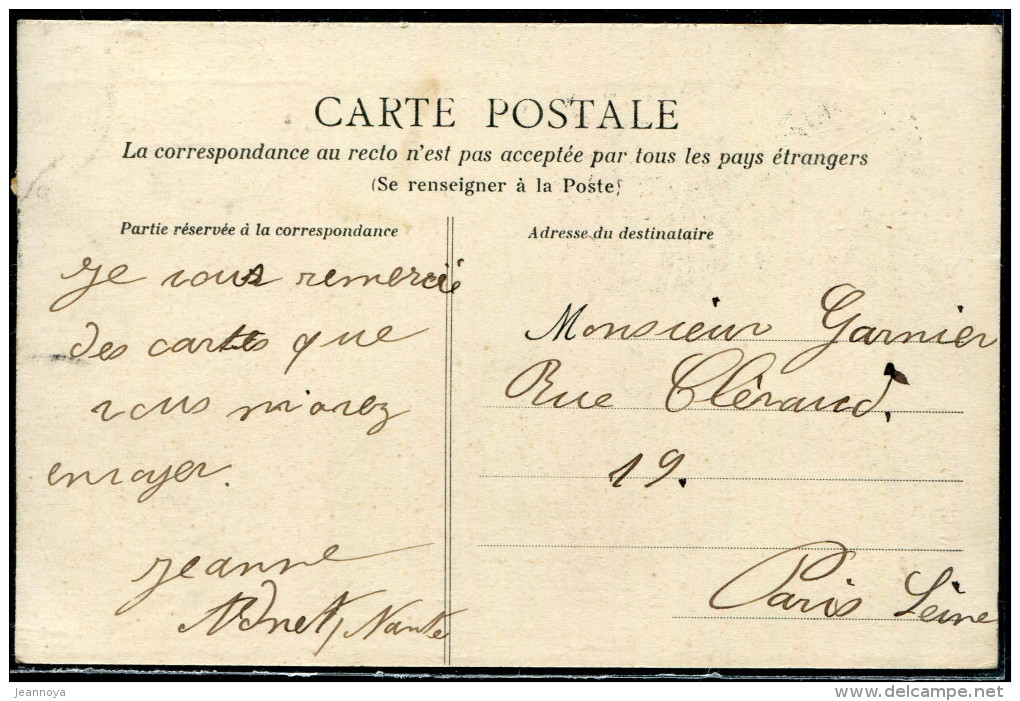 CARTE POSTALE
La correspondance au recto n'est pas acceptée par tous les pays étrangers
(Se renseigner à la Poste)
Partie réservée à la correspondance
Je vous remercie
des cartes que
vous m'avez
envoyer.
Jeanne
Nantes
Adresse du destinataire
Monsieur Garnier
Rue
19.
Paris Seine
jeannoya
www.delcampe.net